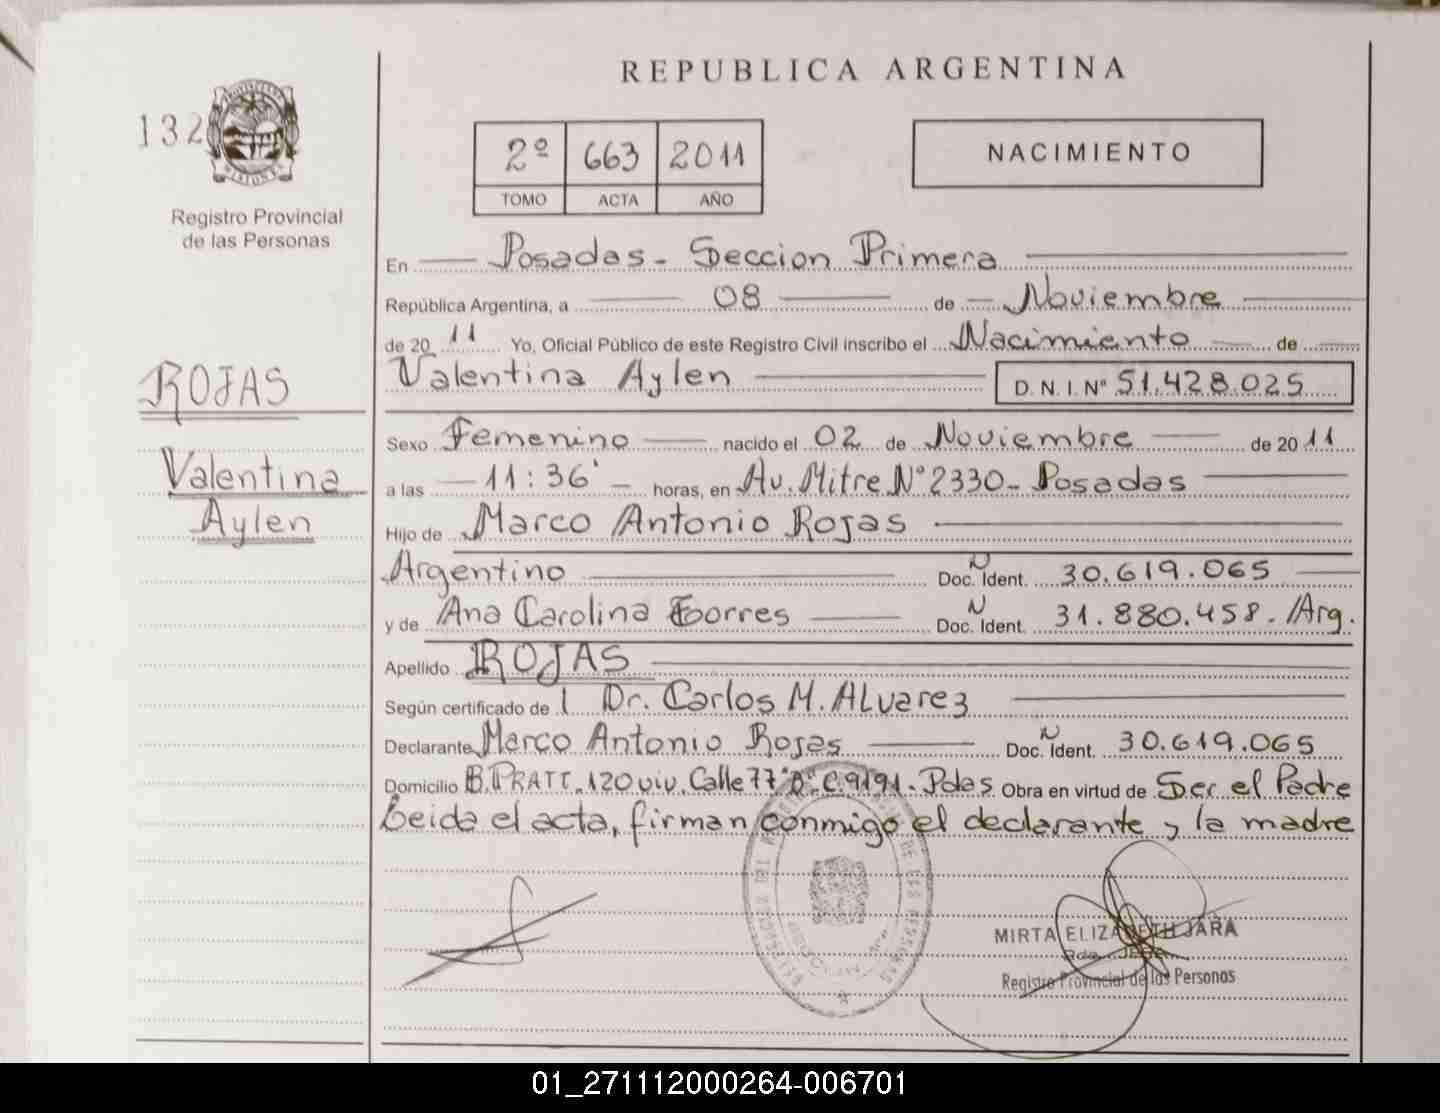 REPUBLICA ARGENTINA
132
MISIONES
Registro Provincial
de las Personas
2º 663 2011
TOMO ACTA AÑO
NACIMIENTO
En Posadas - Seccion Primera
República Argentina, a 08 de Noviembre
de 20 11 Yo, Oficial Público de este Registro Civil inscribo el Nacimiento de
Valentina Aylen D.N.I.Nº 51.428.025
ROJAS
Valentina
Aylen
Sexo Femenino nacido el 02 de Noviembre de 20 11
a las 11:36' horas, en Av. Mitre Nº 2330 - Posadas
Hijo de Marco Antonio Rojas
Argentino Doc. Ident. N 30.619.065
y de Ana Carolina Torres Doc. Ident. N 31.880.458. /Arg.
Apellido ROJAS
Según certificado de Dr. Carlos M. Alvarez
Declarante Marco Antonio Rojas Doc. Ident. N 30.619.065
Domicilio B. PRATT. 120 viv. Calle 77 "A" C. 9191 - Pdas Obra en virtud de Ser el Padre
Leida el acta, firman conmigo el declarante y la madre
MIRTA ELIZABETH JARA
Registro Provincial de las Personas
01_271112000264-006701